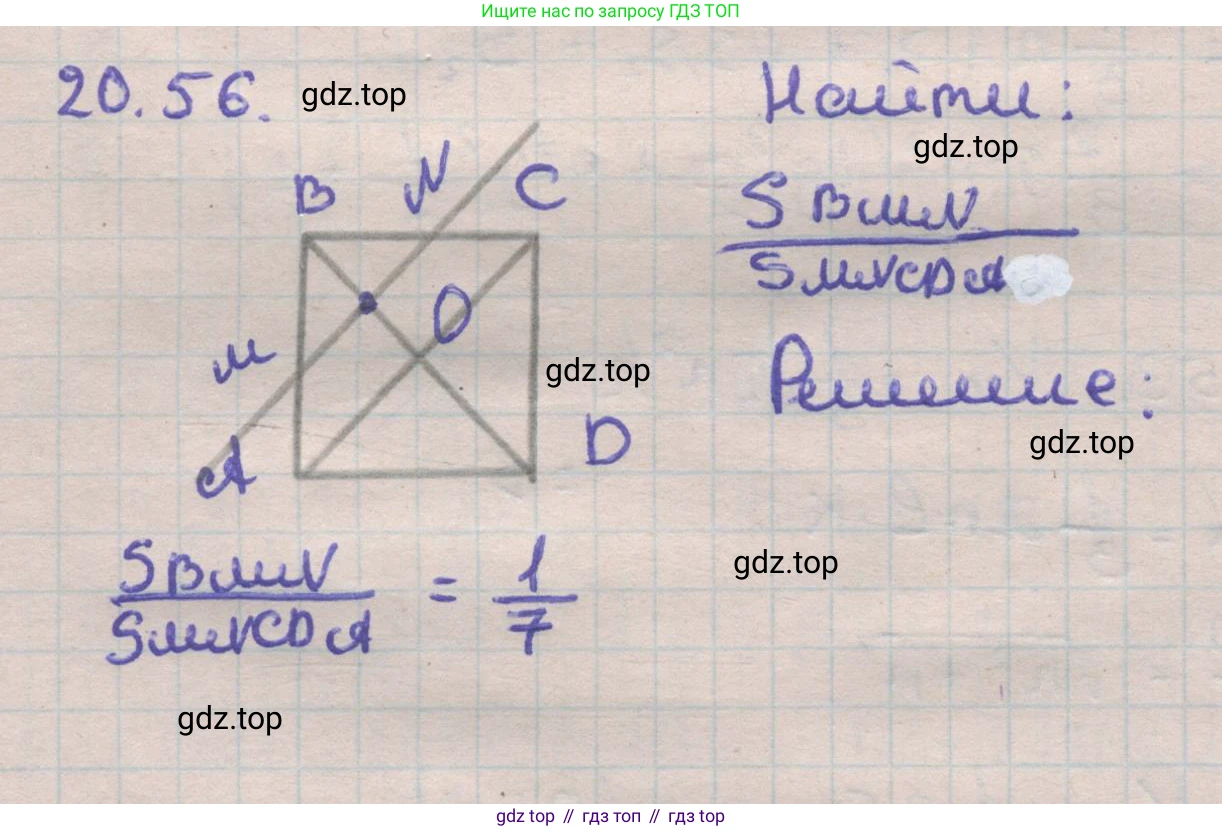 Ищите нас по запросу ГДЗ ТОП
20.56.
gdz.top
Найти:
gdz.top
S BMN
S MNCDA
B N C
O
M
gdz.top
Решение:
gdz.top
D
A
S BMN / S MNCDA = 1 / 7
gdz.top
gdz.top
gdz top // гдз топ // гдз top